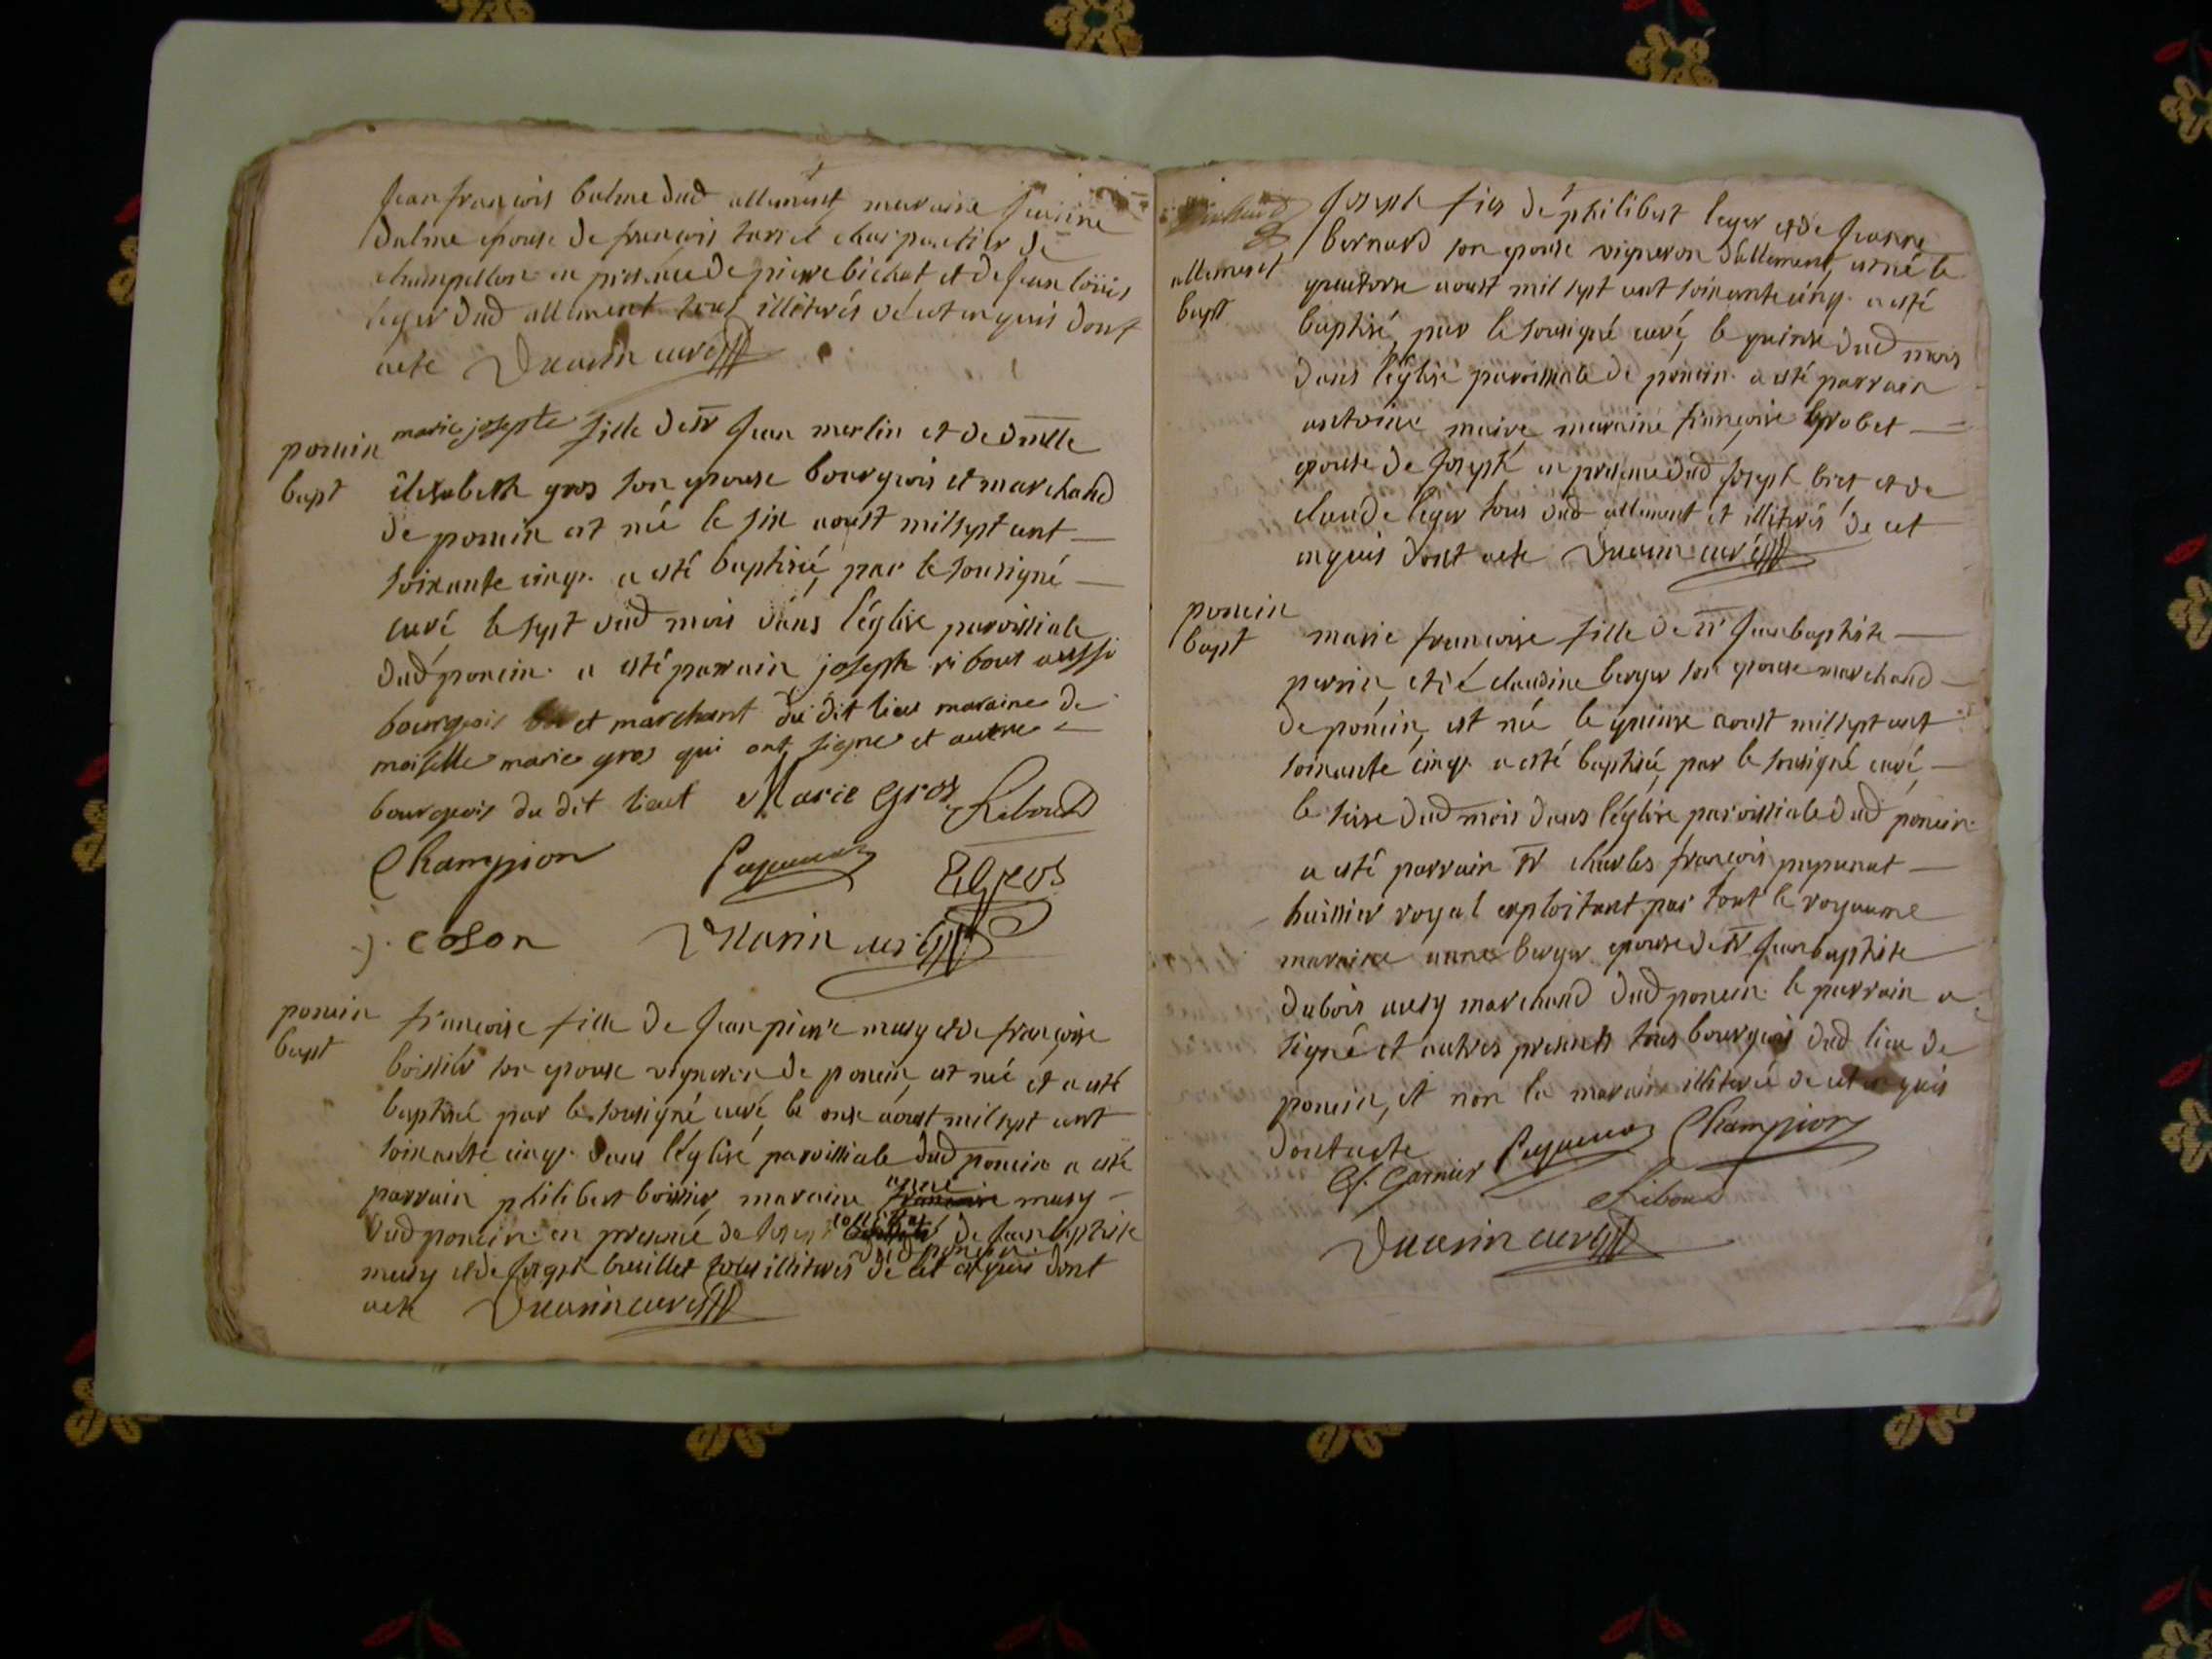 jean françois balme dud allement, maraine jeanine
dalme epouse de françois tarel charpantier de
champellon en presence de pierre bichat et de jean loüis
leger dud allement tous illiterés de cet enquis dont
acte Ducarin curé
poncin
bapt
marie josepte fille de sr jean merlin et de dmelle
elisabeth gros son epouse bourgeois et marchand
de poncin est née le six aoust mil sept cent
soixante cinq. a esté baptisée, par le sousigné
curé le sept dud mois dans l'église paroissiale
dud poncin. a esté parrain joseph ribout aussi
bourgeois et marchant du dit lieu maraine de
moiselle marie gros qui ont signe et autre
bourgeois du dit lieut Marie gros Riboud
Champion Papunat EGros
j. coson Ducarin curé
poncin
bapt
françoise fille de jean pierre musy et de françoise
boissier son epouse vigneron de poncin, est née et a esté
baptisée par le sousigné curé, le onse aoust mil sept cent
soixante cinq. dans l'église paroissiale dud poncin a esté
parrain philibert boissier, maraine anne françoise musy
dud poncin. en presence de de jean baptiste
musy et de joseph breillet tous dud poncin illiterés de cet enquis dont
acte Ducarin curé
allement
bapt
joseph fils de philibert leger et de jeanne
bernard son epouse vigneron d'allement, est né le
quatorse aoust mil sept cent soixante cinq. a esté
baptisé, par le sousigné curé, le quinse dud mois
dans l'église paroissiale de poncin. a esté parrain
antoine maive maraine françoise grobet
epouse de joseph en presence dud joseph bret et de
claude leger tous dud allement et illiterés de cet
enquis dont acte Ducarin curé
poncin
bapt
marie françoise fille de sr jean baptiste
perrin, et de claudine berger son epouse marchand
de poncin, est née le quinse aoust mil sept cent
soixante cinq. a esté baptisée, par le sousigné curé,
le seise dud mois dans l'église paroissiale dud poncin.
a esté parrain sr charles françois papunat
huissier royal exploitant par tout le royaume
maraine anne berger epouse de sr jean baptiste
dubois aussy marchand dud poncin. le parrain a
signé et autres presents tous bourgeois dud lieu de
poncin, et non la maraine illiterée de cet enquis
dont acte Papunat Champion
Cl. Garnier Riboud
Ducarin curé